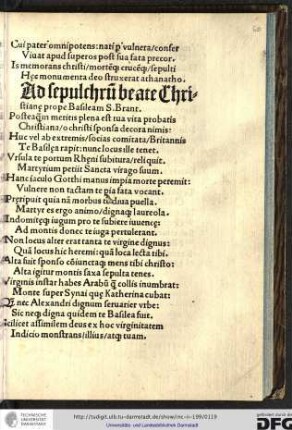 Cui pater omnipotens: nati ꝑ vulnera/confer
Viuat apud superos post sua fata precor.
Is memorans christi/mortēq; crucēq;/sepulti
Hęc monumenta deo struxerat athanatho.
Ad sepulchrū beate Chri-
stianę prope Basileam S. Brant.
Postea meritis plena est tua vita probatis
Christiana/o christi sponsa decora nimis:
Huc vel ab extremis/socias comitata/Britannis
Te Basilea rapit: nunc locus ille tenet.
Vrsula te portum Rheni subitura/reliquit.
Martyrium petiit Sancta virago suum.
Hanc iaculo Gotthi manus impia morte peremit:
Vulnere non tactam te pia fata vocant.
Pręripuit quia nā morbus tua puella.
Martyr es ergo animo/dignaq; laureola.
Indomitęq; iugum pro te subiere iuuencę:
Ad montis donec te iuga pertulerant.
Non locus alter erat tanta te virgine dignus:
Quā locus hic heremi: quā loca lecta tibi.
Alta fuit sponso cōiunctaq; mens tibi christo:
Alta igitur montis saxa sepulta tenes.
Virginis instar habes Arabū q̄ collis inumbrat:
Monte super Synai quę Katherina cubat:
nec Alexandri dignum seruarier vrbe:
Sic neq; digna quidem te Basilea fuit.
Scilicet assimilem deus ex hoc virginitatem
Indicio monstrans/illius/atq; tuam.
TECHNISCHE
UNIVERSITÄT
DARMSTADT
http://tudigit.ulb.tu-darmstadt.de/show/inc-iv-199/0119
Universitäts- und Landesbibliothek Darmstadt
DFG